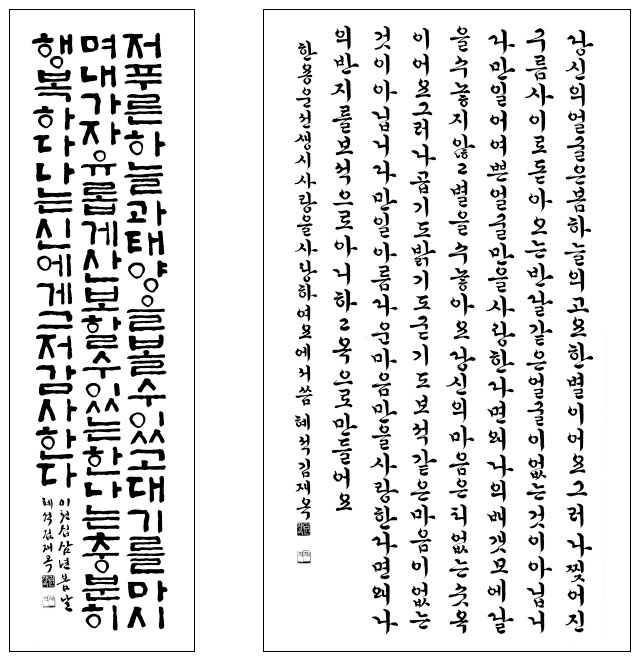 저푸른하늘과태양을볼수있고대기를마시
며내가자유롭게산보할수있는한나는충분히
행복하다나는신에게그저감사한다
이천십삼년봄날
혜석김재옥
당신의얼굴은봄하늘의고요한별이어요그러나찢어진
구름사이로돋아오는반달같은얼굴이없는것이아닙니
다만일어여쁜얼굴만을사랑한다면왜나의베갯모에달
을수놓지않고별을수놓아요당신의마음은티없는숫옥
이어요그러나곱기도밝기도굳기도보석같은마음이없는
것이아닙니다만일아름다운마음만을사랑한다면왜나
의반지를보석으로아니하고옥으로만들어요
한용운선생시사랑을사랑하여요에서씀 혜석김재옥